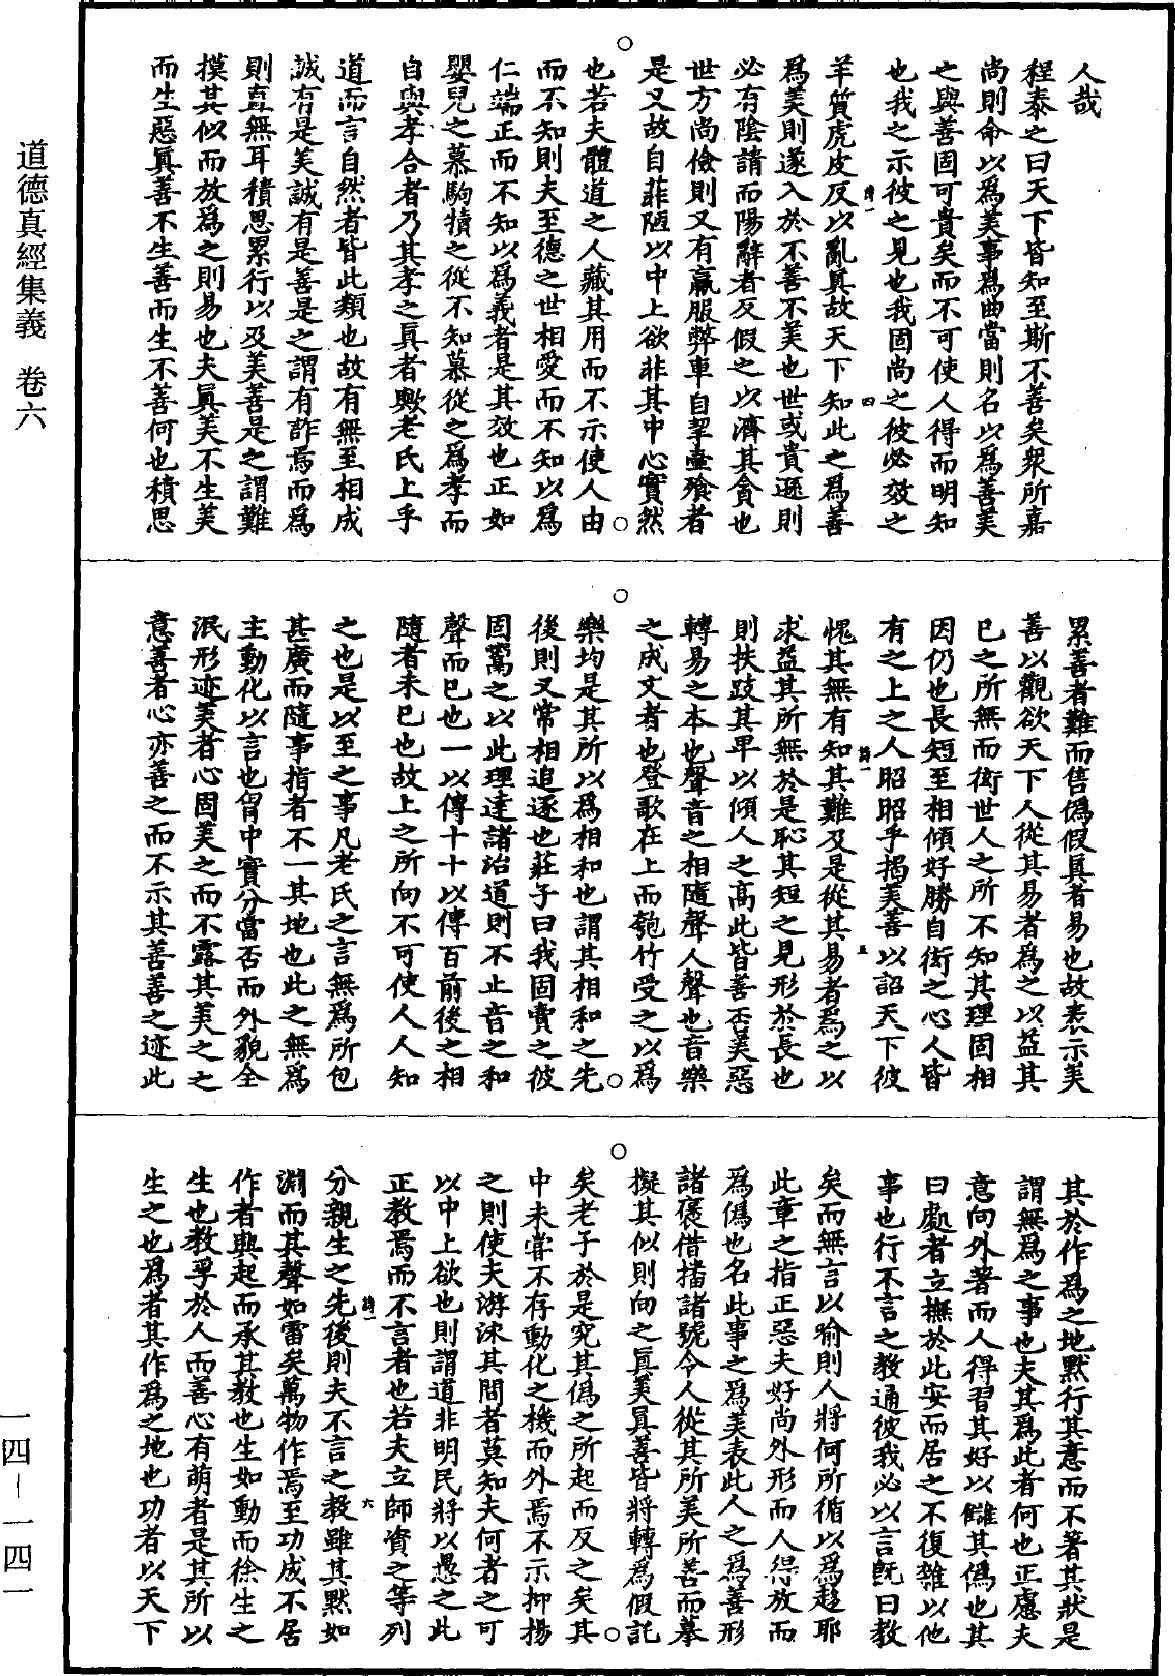 道德真經集義　卷六
人哉
程泰之曰天下皆知至斯不善矣眾所嘉
尚則命以為美事為曲當則名以為善美
之與善固可貴矣而不可使人得而明知
也我之示彼之見也我固尚之彼必效之
羊質虎皮反以亂真故天下知此之為善
為美則遂入於不善不美也世或貴遜則
必有陰請而陽辭者反假之以濟其貪也
世方尚儉則又有羸服弊車自挈壺飱者
是又故自菲陋以中上欲非其中心實然
也若夫體道之人藏其用而不示使人由
而不知則夫至德之世相愛而不知以為
仁端正而不知以為義者是其效也正如
嬰兒之慕駒犢之從不知慕從之為孝而
自與孝合者乃其孝之真者歟老氏上乎
道而言自然者皆此類也故有無至相成
誠有是美誠有是善是之謂有詐焉而為
則直無耳積思累行以及美善是之謂難
摸其似而放為之則易也夫真美不生美
而生惡真善不生善而生不善何也積思
累善者難而售偽假真者易也故表示美
善以觀欲天下人從其易者為之以益其
已之所無而衒世人之所不知其理固相
因仍也長短至相傾好勝自衒之心人皆
有之上之人昭昭乎揭美善以詔天下彼
愧其無有知其難及是從其易者為之以
求益其所無於是恥其短之見形於長也
則扶跂其卑以傾人之高此皆善否美惡
轉易之本也聲音之相隨聲人聲也音樂
之成文者也登歌在上而匏竹受之以為
樂均是其所以為相和也謂其相和之先
後則又常相追逐也莊子曰我固賣之彼
固鬻之以此理達諸治道則不止音之和
聲而已也一以傳十十以傳百前後之相
隨者未已也故上之所向不可使人人知
之也是以至之事凡老氏之言無為所包
甚廣而隨事指者不一其地也此之無為
主動化以言也胷中實分當否而外貌全
泯形迹美者心固美之而不露其美之之
意善者心亦善之而不示其善善之迹此
其於作為之地默行其意而不著其狀是
謂無為之事也夫其為此者何也正慮夫
意向外著而人得習其好以讎其偽也其
曰處者立撫於此安而居之不復雜以他
事也行不言之教通彼我必以言既曰教
矣而無言以喻則人將何所循以為趨耶
此章之指正惡夫好尚外形而人得放而
為偽也名此事之為美表此人之為善形
諸褒借播諸號令人從其所美所善而摹
擬其似則向之真美真善皆將轉為假託
矣老子於是究其偽之所起而反之矣其
中未嘗不存動化之機而外焉不示抑揚
之則使夫游沫其間者莫知夫何者之可
以中上欲也則謂道非明民將以愚之此
正教焉而不言者也若夫立師資之等列
分親生之先後則夫不言之教雖其默如
淵而其聲如雷矣萬物作焉至功成不居
作者興起而承其教也生如動而徐生之
生也教孚於人而善心有萌者是其所以
生之也為者其作為之地也功者以天下
一四-一四一